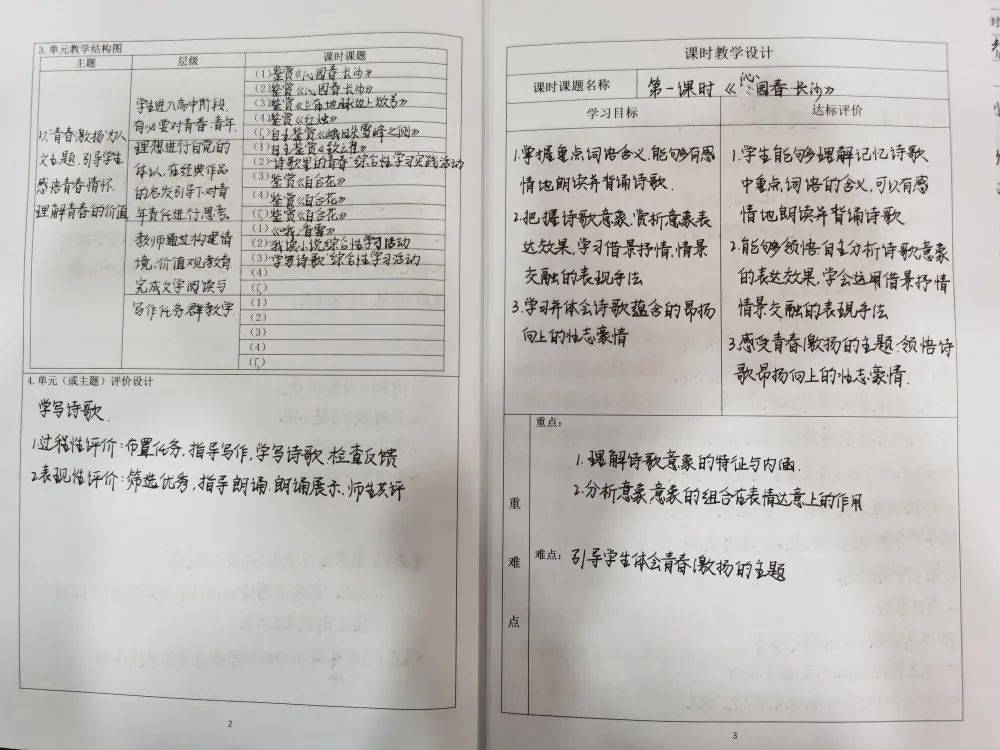 3. 单元教学结构图
主题 层级 课时课题
以“青春激扬”为人
文主题,引导学生
感悟青春情怀,
理解青春的价值
学生进入高中阶段,
有必要对青春、青年、
理想进行自觉的
体认,在经典作品
的启发引导下对青
年责任进行思考。
教师通过构建情
境、价值观教育,
完成文学阅读与
写作任务群教学.
(1)鉴赏《沁园春·长沙》
(2)鉴赏《沁园春·长沙》
(3)鉴赏《立在地球边上放号》
(4)鉴赏《红烛》
(5)自主鉴赏《峨日朵雪峰之侧》
(1)自主鉴赏《致云雀》
(2)“诗歌里的青春”综合性学习实践活动
(3)鉴赏《百合花》
(4)鉴赏《百合花》
(5)鉴赏《百合花》
(1)《哦,香雪》
(2)“我读小说”综合性学习活动
(3)“学写诗歌”综合性学习活动
(4)
(5)
(1)
(2)
(3)
(4)
(5)
4. 单元(或主题)评价设计
学写诗歌
1.过程性评价:布置任务,指导写作,学写诗歌.检查反馈
2.表现性评价:筛选优秀,指导朗诵.朗诵展示.师生共评
2
课时教学设计
课时课题名称 第一课时《沁园春·长沙》
学习目标 达标评价
1.掌握重点词语含义,能够有感
情地朗读并背诵诗歌.
2.把握诗歌意象,赏析意象表
达效果,学习借景抒情,情景
交融的表现手法
3.学习并体会诗歌蕴含的昂扬
向上的壮志豪情
1.学生能够理解记忆诗歌
中重点词语的含义,可以有感
情地朗读并背诵诗歌
2.能够领悟、自主分析诗歌意象
的表达效果,学会运用借景抒情
情景交融的表现手法
3.感受青春激扬的主题、领悟诗
歌昂扬向上的壮志豪情.
重难点
重点:
1.理解诗歌意象的特征与内涵.
2.分析意象、意象的组合在表情达意上的作用
难点: 引导学生体会青春激扬的主题
3